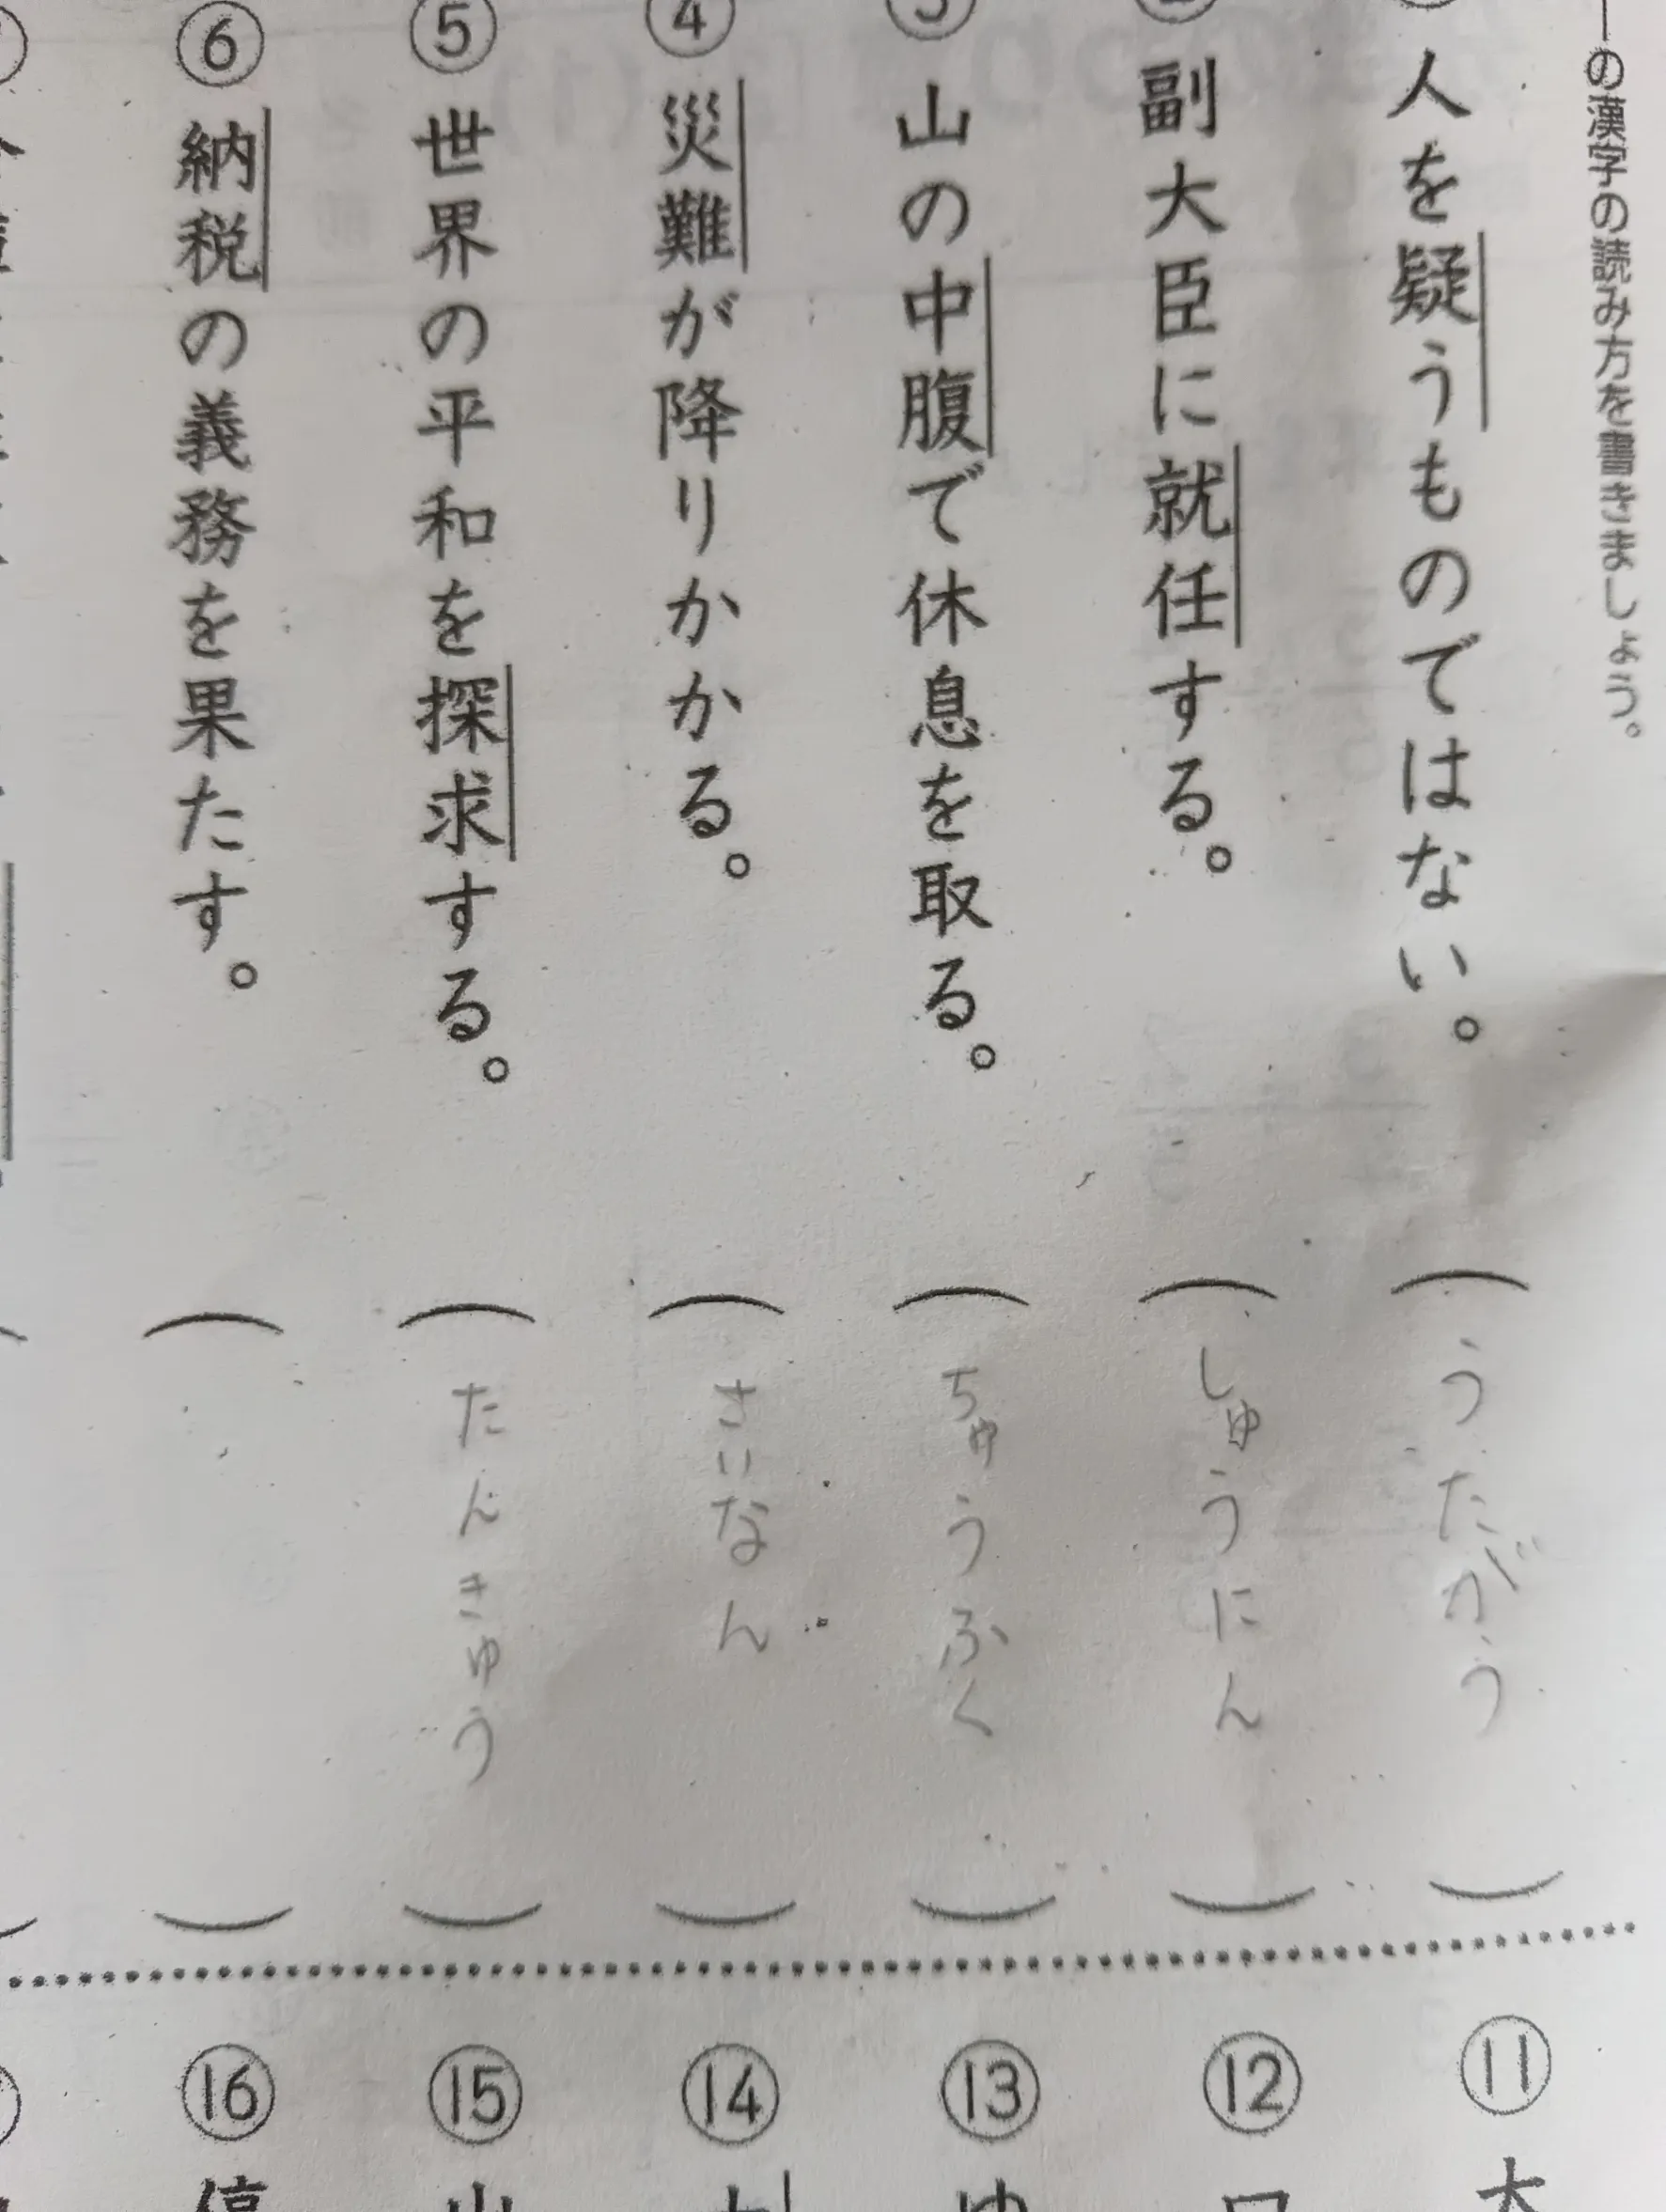 の漢字の読み方を書きましょう。
人を疑うものではない。
(うたがう)
副大臣に就任する。
(しゅうにん)
山の中腹で休息を取る。
(ちゅうふく)
④ 災難が降りかかる。
(さいなん)
⑤ 世界の平和を探求する。
(たんきゅう)
⑥ 納税の義務を果たす。
( )
⑪
⑫
⑬
⑭
⑮
⑯